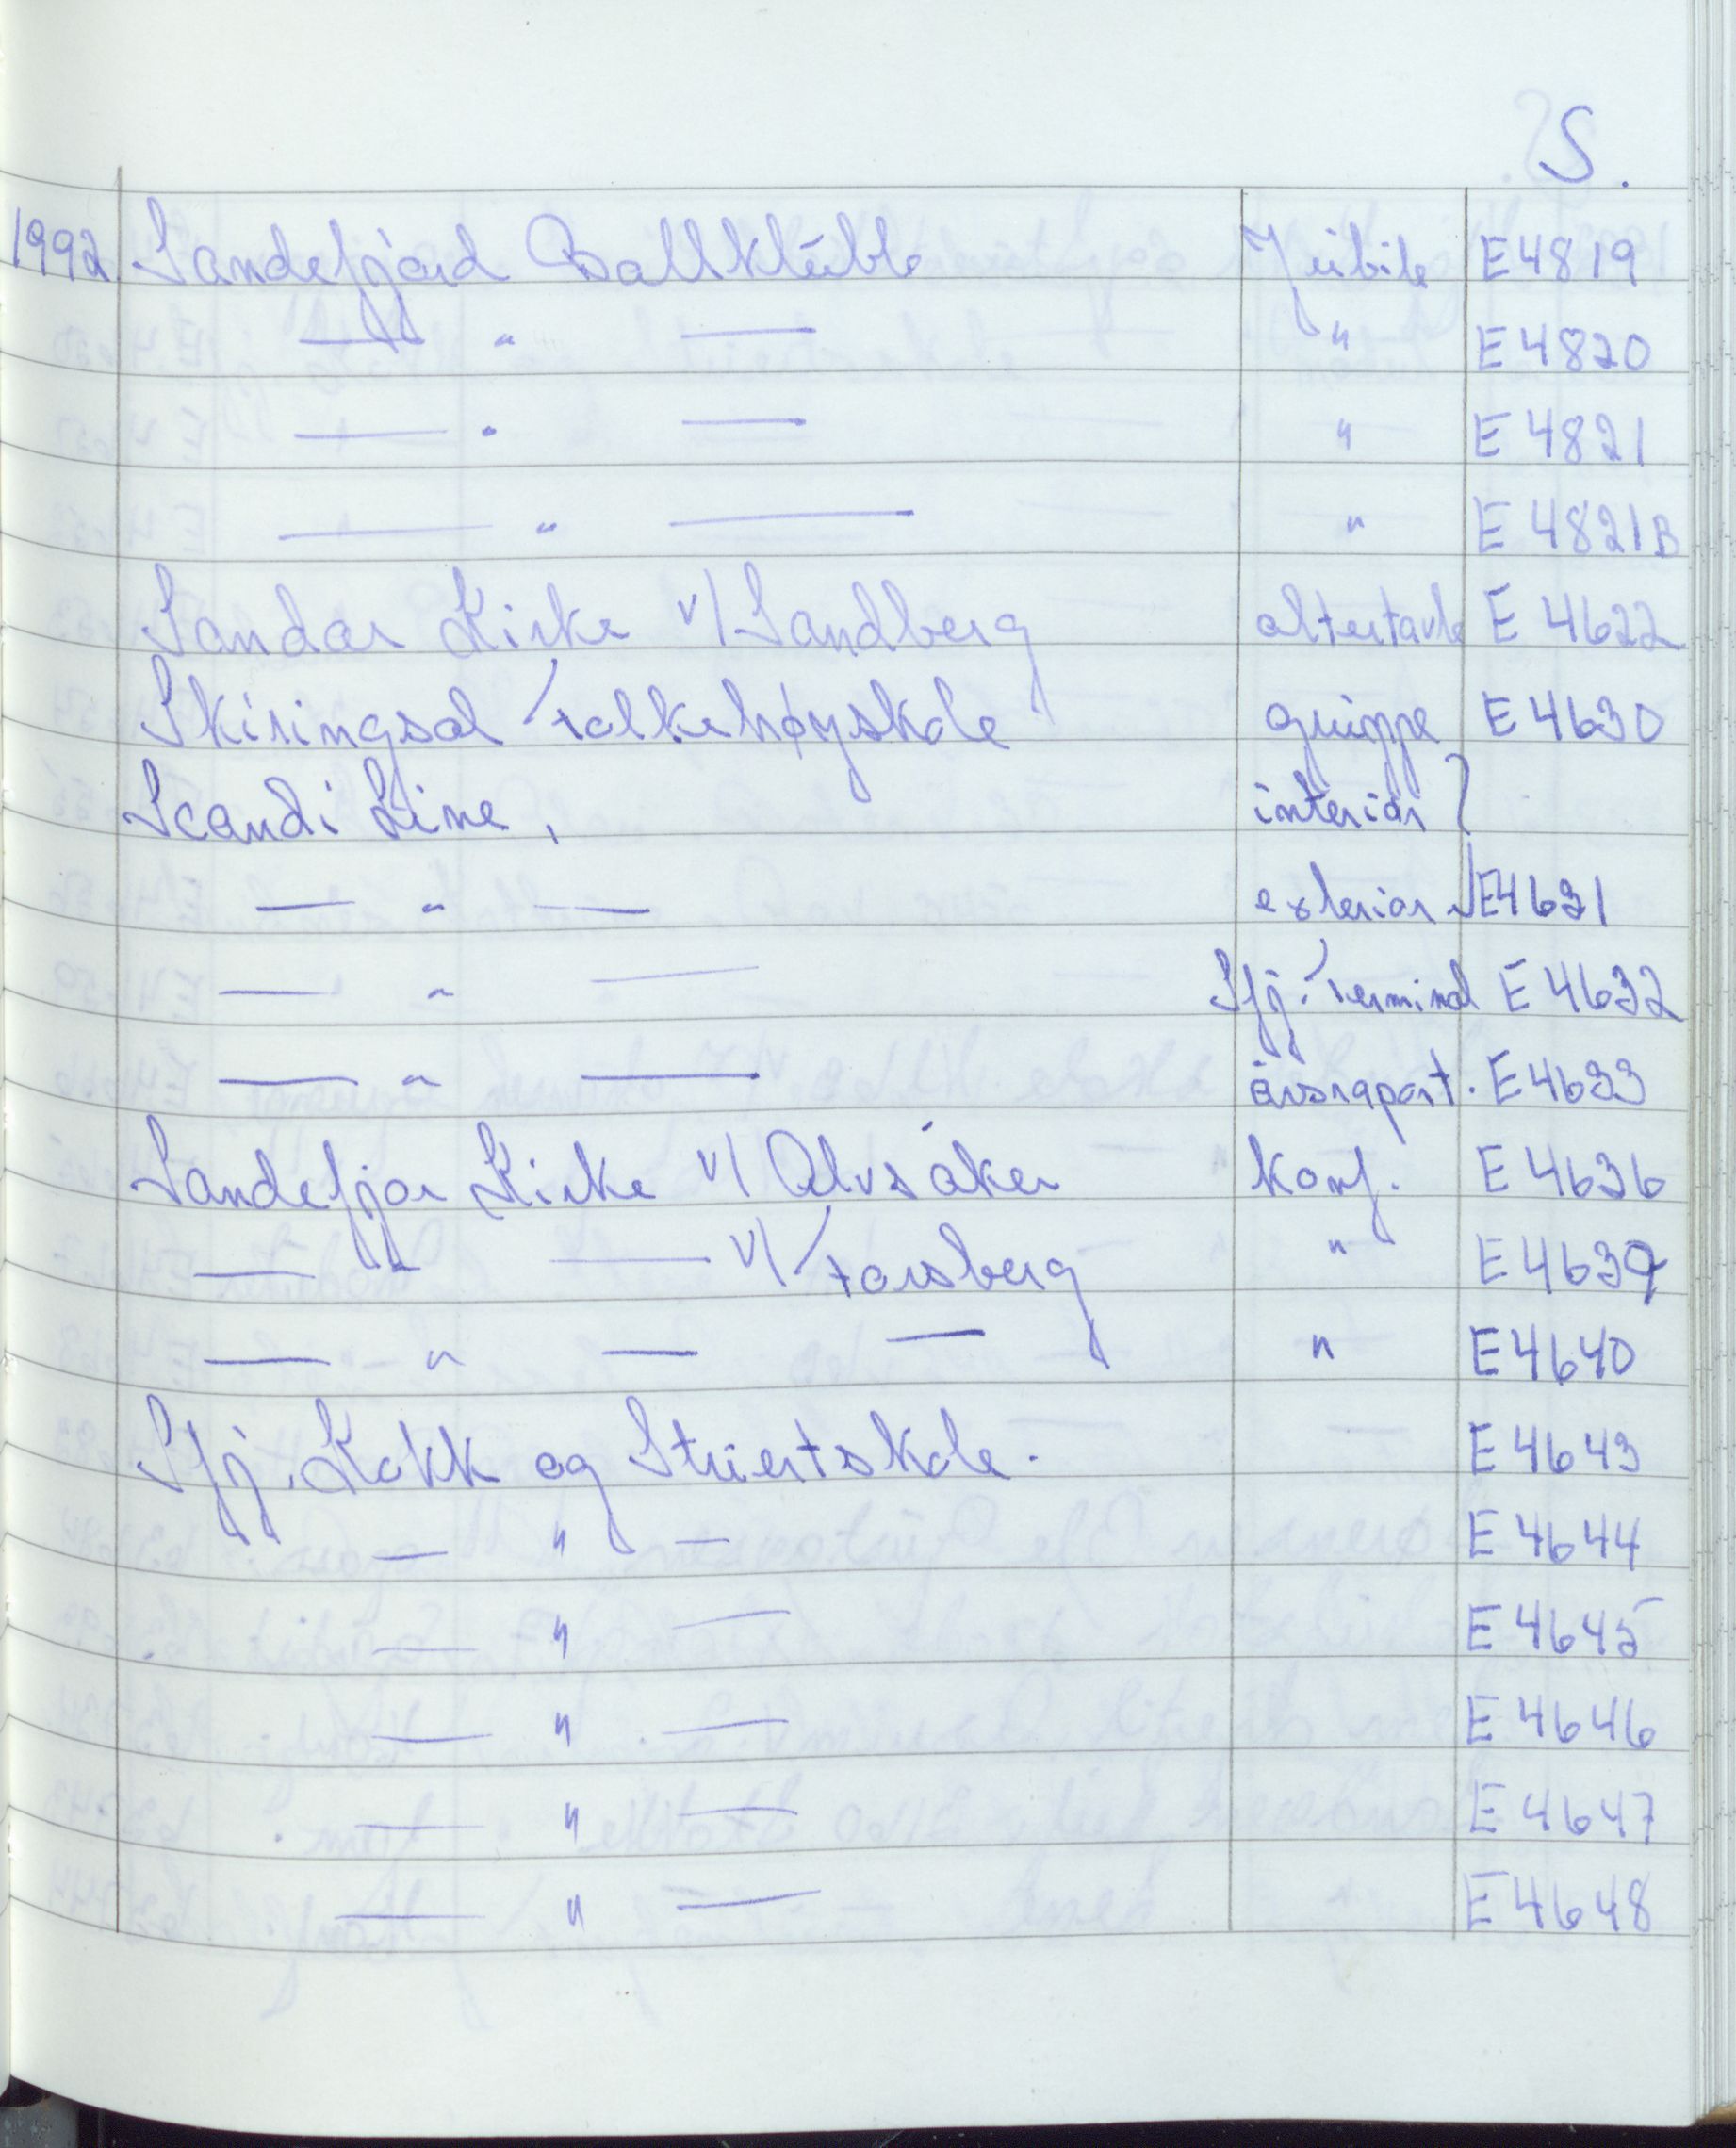 S.
1992. Sandefjord Ballklubb Jubile E4819
— " — " E4820
— " — " E4821
— " — " E4821B
Sandar Kirke v/ Sandberg altertavle E 4622
Skiringsal Folkehøyskole gruppe E 4630
Scandi Line, interiør }
— " — exteriør E4631
— " — Sfj. Terminal E 4632
— " — årsraport. E4633
Sandefjor Kirke v/ Alvsåker Konf. E 4636
— " — v/ Forsberg " E4639
— " — — " E4640
Sfj. Kokk og Stuertskole. E4643
— " — E4644
— " — E4645
— " — E4646
— " — E4647
— " — E4648